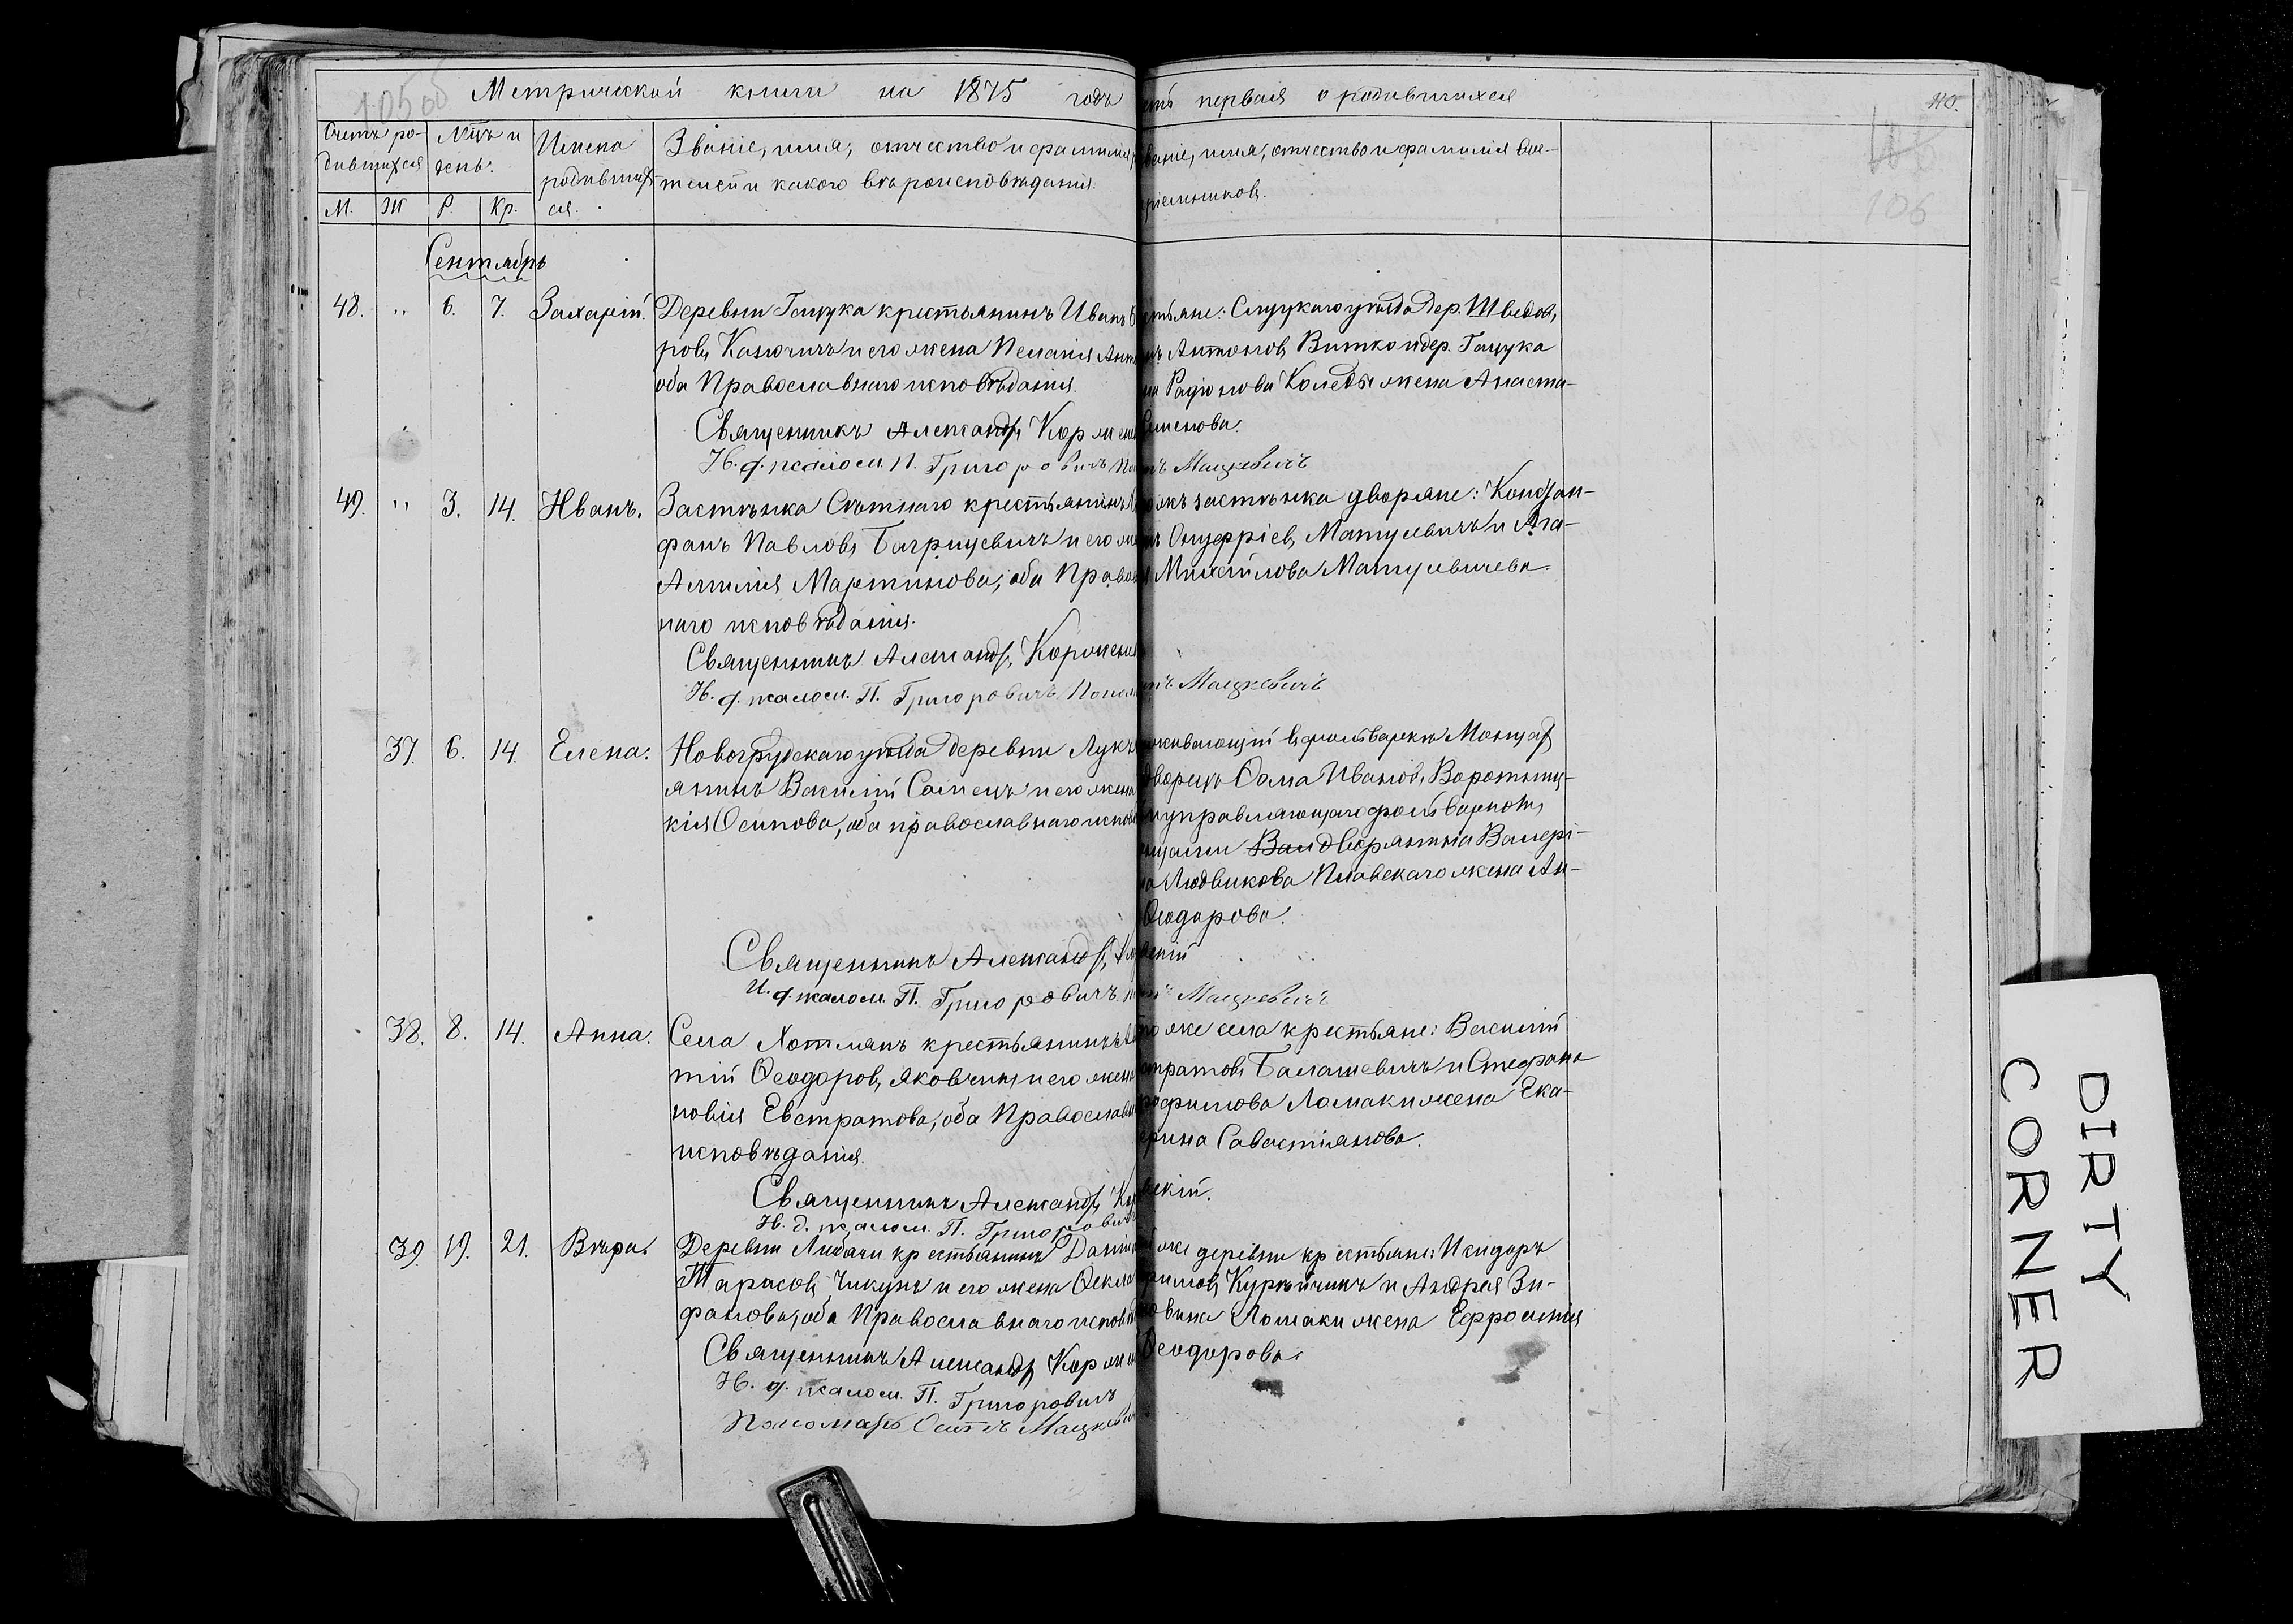 Метрической книги на 1875 годъ
сть первая о родившихся
110.
106
Счетъ ро-
дившихся
Мцъ и
день.
Имена
родивших
ся.
Званіе, имя, отчество и фамилія р
телей и какого вѣроисповѣданія.
ваніе, имя, отчество и фамилія вос-
пріемниковъ.
М. Ж Р. Кр.
Сентябрь
48. " 6. 7. Захарій. Деревни Гацука крестьянинъ Иванъ
ровъ Канючичъ и его жена Пелагія Анто
оба Православнаго исповѣданія.
Священникъ Александръ Корженев
И. д. псалом. П. Григоровичъ По
стьяне: Слуцкаго уѣзда дер. Шведовъ
нъ Антоновъ Витко и дер. Гацука
на Радіонова Коледы жена Анаста-
Семенова.
Мацкевичъ
49. " 3. 14. Иванъ. Застѣнка Сѣтнаго крестьянинъ
фанъ Павловъ Багрицевичъ и его же
Амилія Мартинова, оба Правосл
наго исповѣданія.
Священникъ Александръ Корженев
И. д. псалом. П. Григоровичъ. Поном
ожъ застѣнка дворяне: Констан-
нъ Онуфріевъ Матусевичъ и Ага-
Михайлова Матусевичева.
Мацкевичъ
37. 6. 14. Елена. Новогрудскаго уѣзда деревни Лук
янинъ Василій Самецъ и его жена
кія Осипова, оба православнаго испов
Священникъ Александръ
И. д. псалом. П. Григоровичъ
живающій въ фольваркѣ Монца
дворецъ Ѳома Ивановъ Воротниц-
и управляющаго фольваркомъ
нцами Вал дворянина Валері-
на Людвикова Плавскаго жена Ан-
Ѳеодорова.
вскій
Мацкевичъ
38. 8. 14. Анна. Села Хотлянъ крестьянинъ
тій Ѳеодоровъ Яковчицъ и его жена
новія Евстратова, оба Православн
исповѣданія.
Священникъ Александръ Кор
И. д. псалом. П. Григоровичъ
го же села крестьяне: Василій
стратовъ Балашевичъ и Стефана
рофимова Ломаки жена Ека-
ерина Савастіянова.
вскій.
39. 19. 21. Вѣра. Деревни Либачи крестьянинъ Дани
Тарасовъ Чикунъ и его жена Ѳекла
фанова, оба Православнаго исповѣд
Священникъ Александръ Коржен
И. д. псалом. П. Григоровичъ
Пономарь Осипъ Мацкевич
же деревни крестьяне: Исидоръ
фимовъ Курейчикъ и Андрея Зи-
новина Ломаки жена Ефросинія
Ѳеодорова.
DIRTY
CORNER